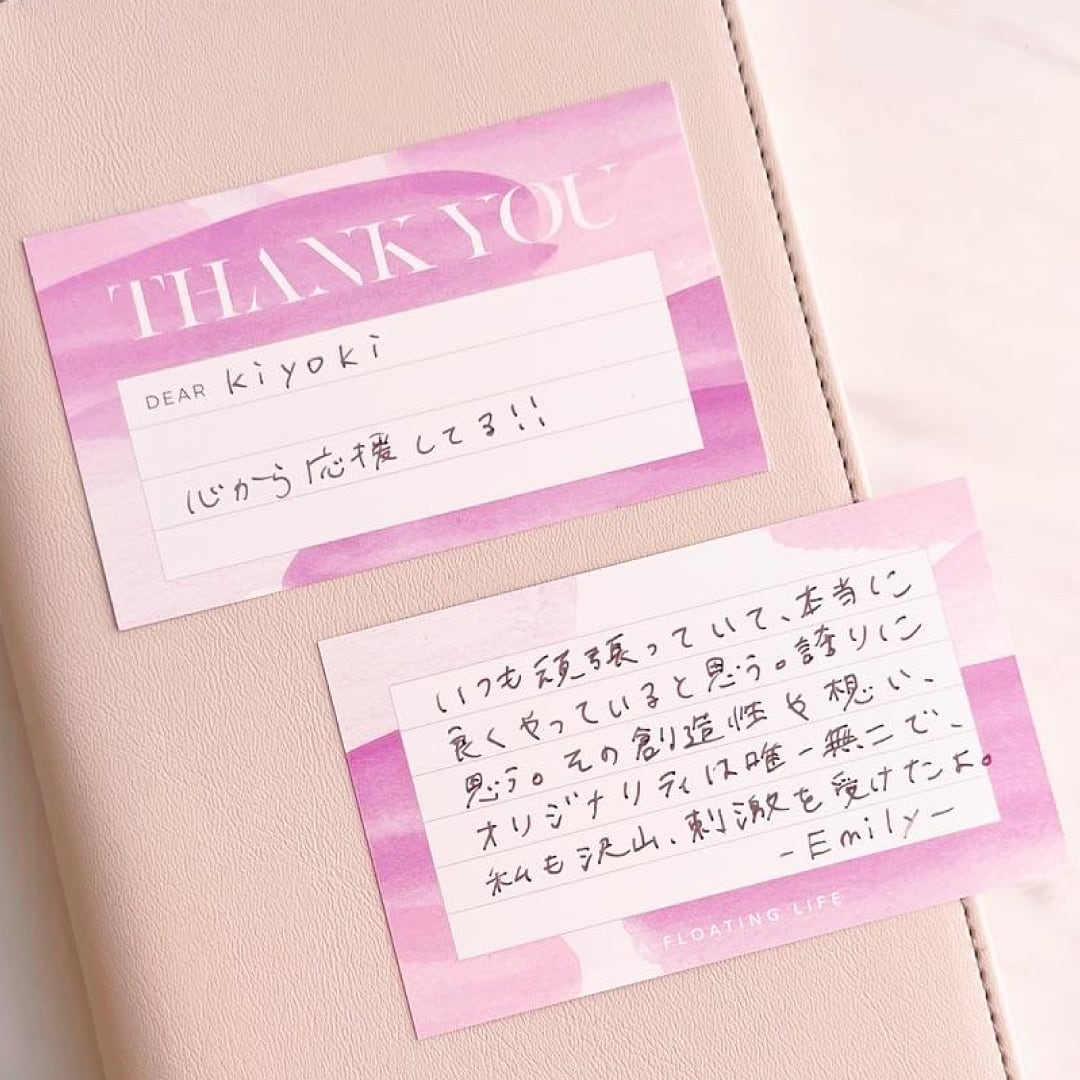 THANK YOU
DEAR kiyoki
心から応援してる!!
いつも頑張っていて、本当に
良くやっていると思う。誇りに
思う。その創造性や想い、
オリジナリティは唯一無二で、
私も沢山、刺激を受けたよ。
-Emily-
A FLOATING LIFE